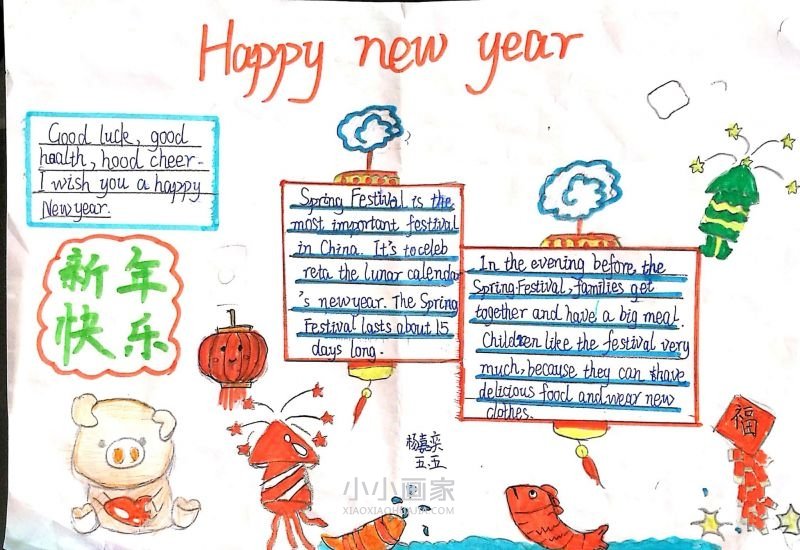 Happy new year
Good luck, good
health, hood cheer.
I wish you a happy
New year.
新年
快乐
Spring Festival is the
most important festival
in China. It's to celeb
reta the lunar calendar
's new year. The Spring
Festival lasts about 15
days long.
In the evening before the
Spring Festival, families get
together and have a big meal.
Children like the festival very
much, because they can thave
delicious food and wear new
clothes.
杨嘉奕
五.五
福
小小画家
XIAOXIAOHUAJIA.COM